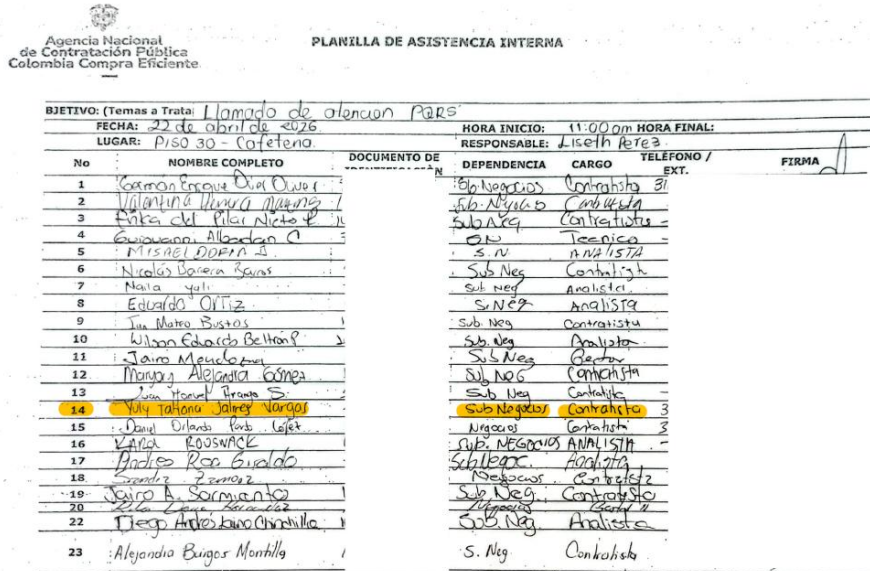 Agencia Nacional
de Contratación Pública
Colombia Compra Eficiente
PLANILLA DE ASISTENCIA INTERNA
BJETIVO: (Temas a Tratar Llamado de atencion PQRS
FECHA: 22 de abril de 2026 HORA INICIO: 11:00 am HORA FINAL:
LUGAR: PISO 30 - Cafeteria RESPONSABLE: Liseth Perez
No NOMBRE COMPLETO DOCUMENTO DE DEPENDENCIA CARGO TELÉFONO / EXT. FIRMA
1 Enrique Sub. Negocios Contratista 31
2 Valentina Sub. Negocios Contratista
3 Erika del Pilar Nieto Sub Neg Contratista -
4 C SN Tecnico -
5 MISAEL S.N. ANALISTA
6 Nicolás Barrera Sub Neg Contratista
7 Naila yuli Sub Neg Analista
8 Eduardo ORTIZ S. Neg Analista
9 Mateo Bustos Sub. Neg Contratista
10 Wilson Eduardo Beltran P Sub. Neg Analista
11 Jairo Mendoza Sub Neg Gestor
12 Alejandra Gómez Sub Neg Contratista
13 Juan Manuel Arango S. Sub Neg Contratista
14 Yuly Tatiana Vargas Sub Negocios Contratista 3
15 Daniel Orlando Negocios Contratista 3
16 KAROL ROUSNACK Sub. NEGOCIOS ANALISTA -
17 Andres Roa Giraldo Sub Negoc. Analista
18 Negocios Contratista
19 Jairo A. Sarmiento Sub Neg. Contratista
20 Negocios
22 Diego Andrés Chinchilla Sub. Neg Analista
23 Alejandra Burgos Montilla S. Neg Contratista